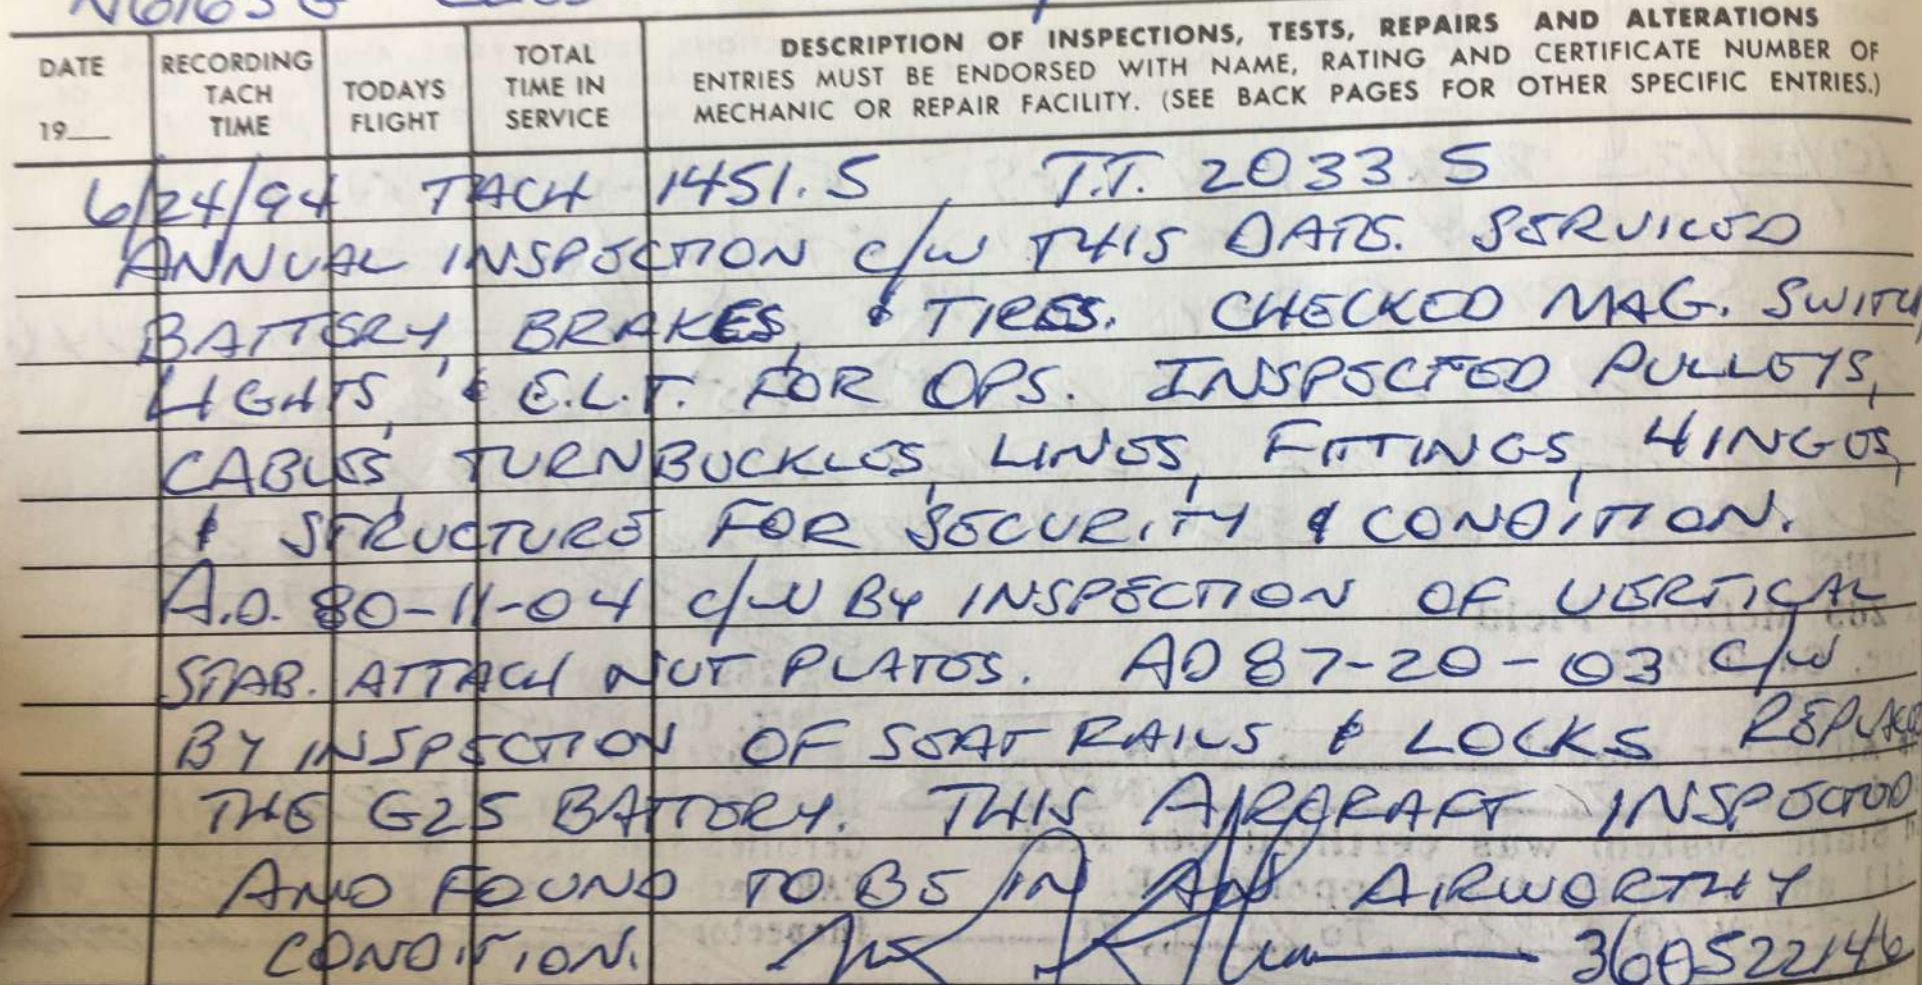 N6163G
DATE
19__
RECORDING
TACH
TIME
TODAYS
FLIGHT
TOTAL
TIME IN
SERVICE
DESCRIPTION OF INSPECTIONS, TESTS, REPAIRS AND ALTERATIONS
ENTRIES MUST BE ENDORSED WITH NAME, RATING AND CERTIFICATE NUMBER OF
MECHANIC OR REPAIR FACILITY. (SEE BACK PAGES FOR OTHER SPECIFIC ENTRIES.)
6/24/94 TACH 1451.5 T.T. 2033.5
ANNUAL INSPECTION c/w THIS DATE. SERVICED
BATTERY, BRAKES, & TIRES. CHECKED MAG. SWITCH,
LIGHTS, & E.L.T. FOR OPS. INSPECTED PULLEYS,
CABLES, TURNBUCKLES, LINES, FITTINGS, HINGES,
& STRUCTURE FOR SECURITY & CONDITION.
A.D. 80-11-04 c/w BY INSPECTION OF VERTICAL
STAB. ATTACH NUT PLATES. AD 87-20-03 c/w
BY INSPECTION OF SEAT RAILS & LOCKS REPLACED
THE G25 BATTERY. THIS AIRCRAFT INSPECTED
AND FOUND TO BE IN AN AIRWORTHY
CONDITION. 360522146